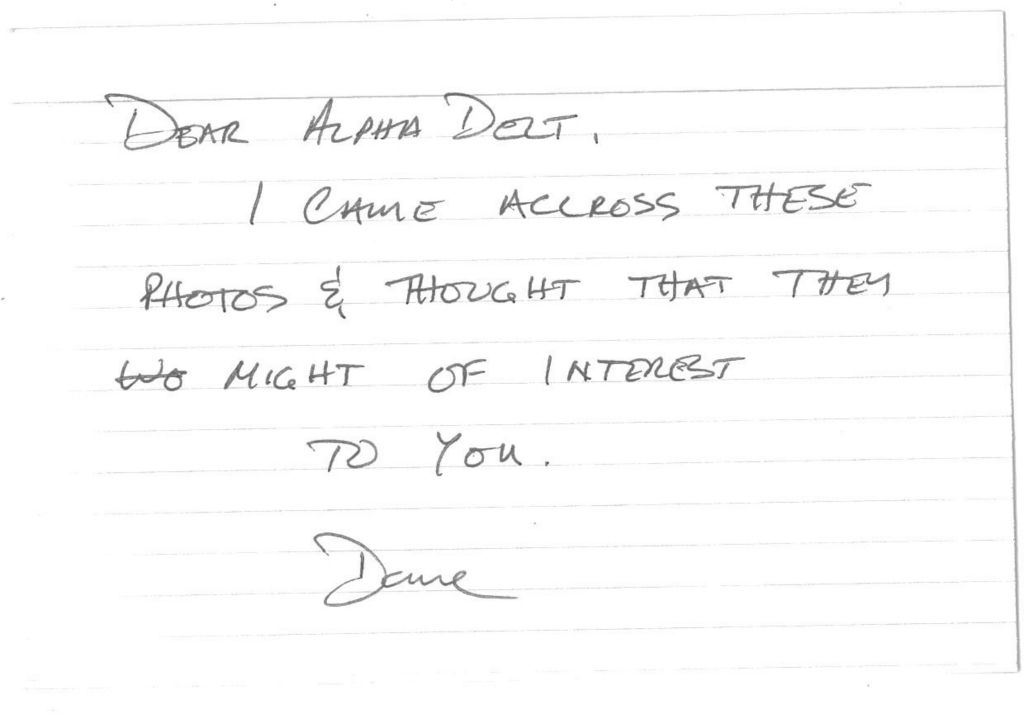 DEAR ALPHA DELT,
I CAME ACCROSS THESE
PHOTOS & THOUGHT THAT THEY
MIGHT OF INTEREST
TO YOU.
Dave